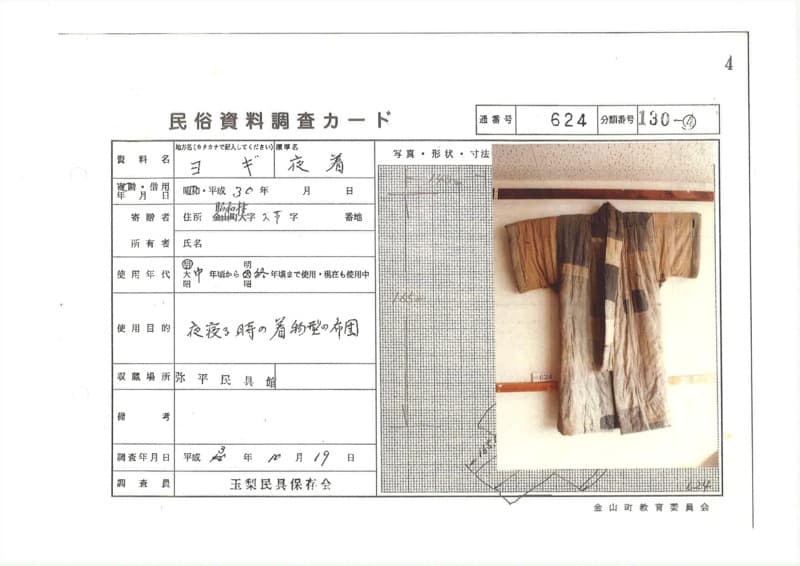 4
民俗資料調査カード
通番号 624 分類番号 130-④
資料名 地方名(カタカナで記入してください) ヨギ 標準名 夜着
写真・形状・寸法
寄贈・借用年月日 昭和・平成 30年 月 日
寄贈者 住所 金山町大字 字 番地
所有者 氏名
使用年代 明大昭 中 年頃から 明大昭 年頃まで使用・現在も使用中
使用目的 夜寝る時の着物型の布団
収蔵場所 弥平民具館
備考
調査年月日 平成 3年 10月 19日
調査員 玉梨民具保存会
624
金山町教育委員会